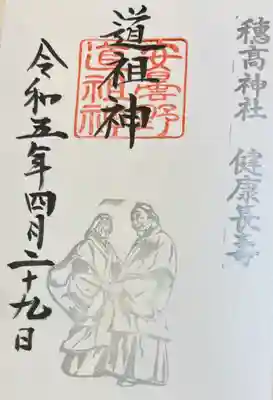 穗高神社 健康長寿
安曇野
道祖神
道祖神
令和五年四月二十九日